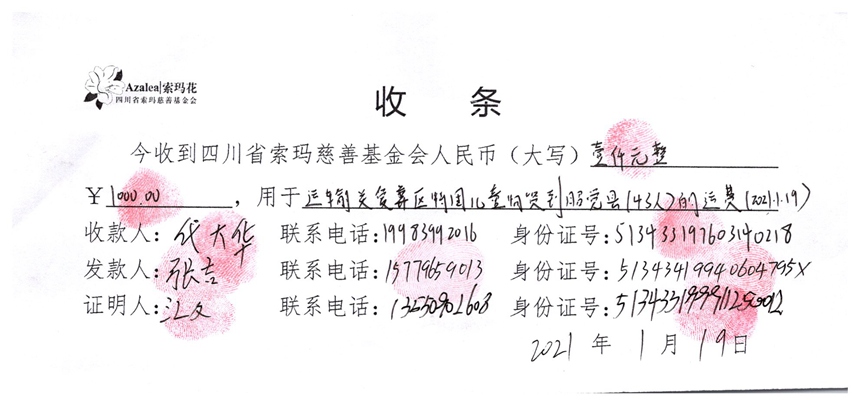 Azalea|索玛花
四川省索玛慈善基金会
收 条
今收到四川省索玛慈善基金会人民币（大写）壹仟元整
￥1000.00，用于运输关爱 区 儿童物资到 县(43人)的运费(2021.1.19)
收款人：代大华 联系电话：19983992016 身份证号：513433197603140218
发款人：张吉 联系电话：15779659013 身份证号：51343419940604795X
证明人：江文 联系电话：13550902608 身份证号：
2021 年 1 月 19 日